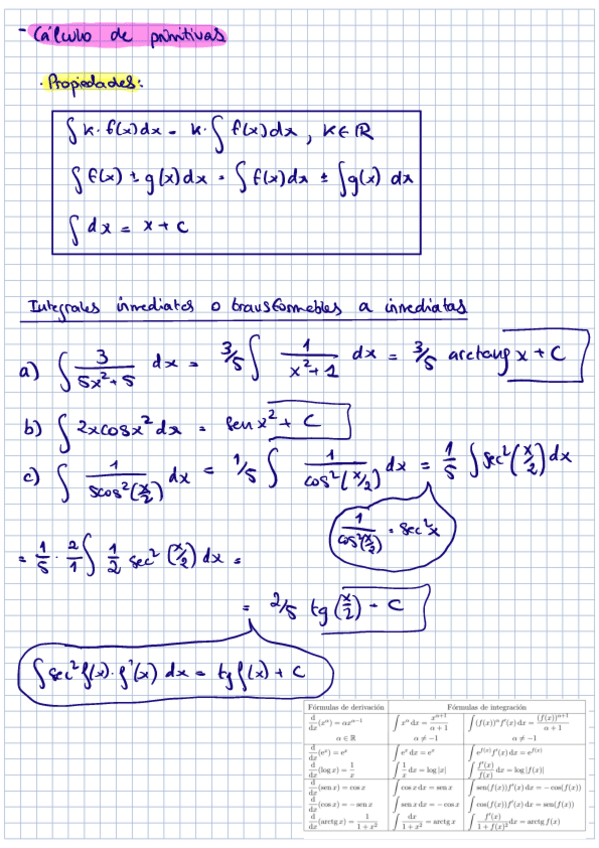 - Cálculo de primitivas
· Propiedades:
∫ k· f(x) dx = k· ∫ f(x) dx , k ∈ ℝ
∫ f(x) ± g(x) dx = ∫ f(x) dx ± ∫ g(x) dx
∫ dx = x + C
Integrales inmediates o transformebles a inmediatas
a) ∫ 3/(5x²+5) dx = 3/5 ∫ 1/(x²+1) dx = 3/5 arctang x + C
b) ∫ 2x cos x² dx = sen x² + C
c) ∫ 1/(5cos²(x/2)) dx = 1/5 ∫ 1/(cos²(x/2)) dx = 1/5 ∫ sec²(x/2) dx
1/(cos²(x/2)) = sec²x
= 1/5 · 2/1 ∫ 1/2 sec²(x/2) dx =
= 2/5 tg(x/2) - C
∫ sec² f(x)· f'(x) dx = tg f(x) + C
Fórmulas de derivación Fórmulas de integración
d/dx (x^α) = αx^(α−1) ∫ x^α dx = x^(α+1)/(α+1) ∫ (f(x))^α f'(x) dx = (f(x))^(α+1)/(α+1)
α ∈ ℝ α ≠ −1 α ≠ −1
d/dx (e^x) = e^x ∫ e^x dx = e^x ∫ e^(f(x)) f'(x) dx = e^(f(x))
d/dx (log x) = 1/x ∫ 1/x dx = log |x| ∫ f'(x)/f(x) dx = log |f(x)|
d/dx (sen x) = cos x ∫ cos x dx = sen x ∫ sen(f(x))f'(x) dx = − cos(f(x))
d/dx (cos x) = − sen x ∫ sen x dx = − cos x ∫ cos(f(x))f'(x) dx = sen(f(x))
d/dx (arctg x) = 1/(1+x²) ∫ dx/(1+x²) = arctg x ∫ f'(x)/(1+f(x)²) dx = arctg f(x)